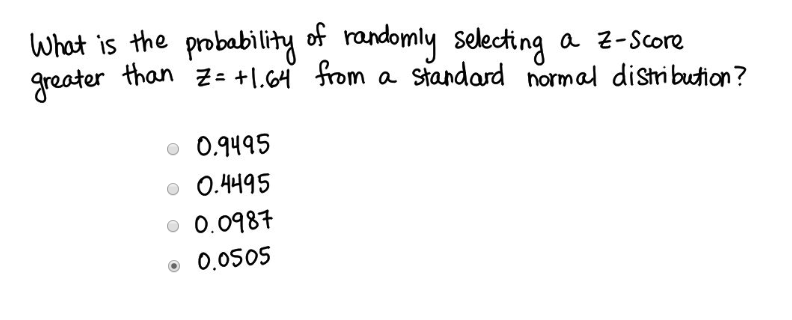 What is the probability of randomly selecting a z-score
greater than z = +1.64 from a standard normal distribution?
0.9495
0.4495
0.0987
0.0505